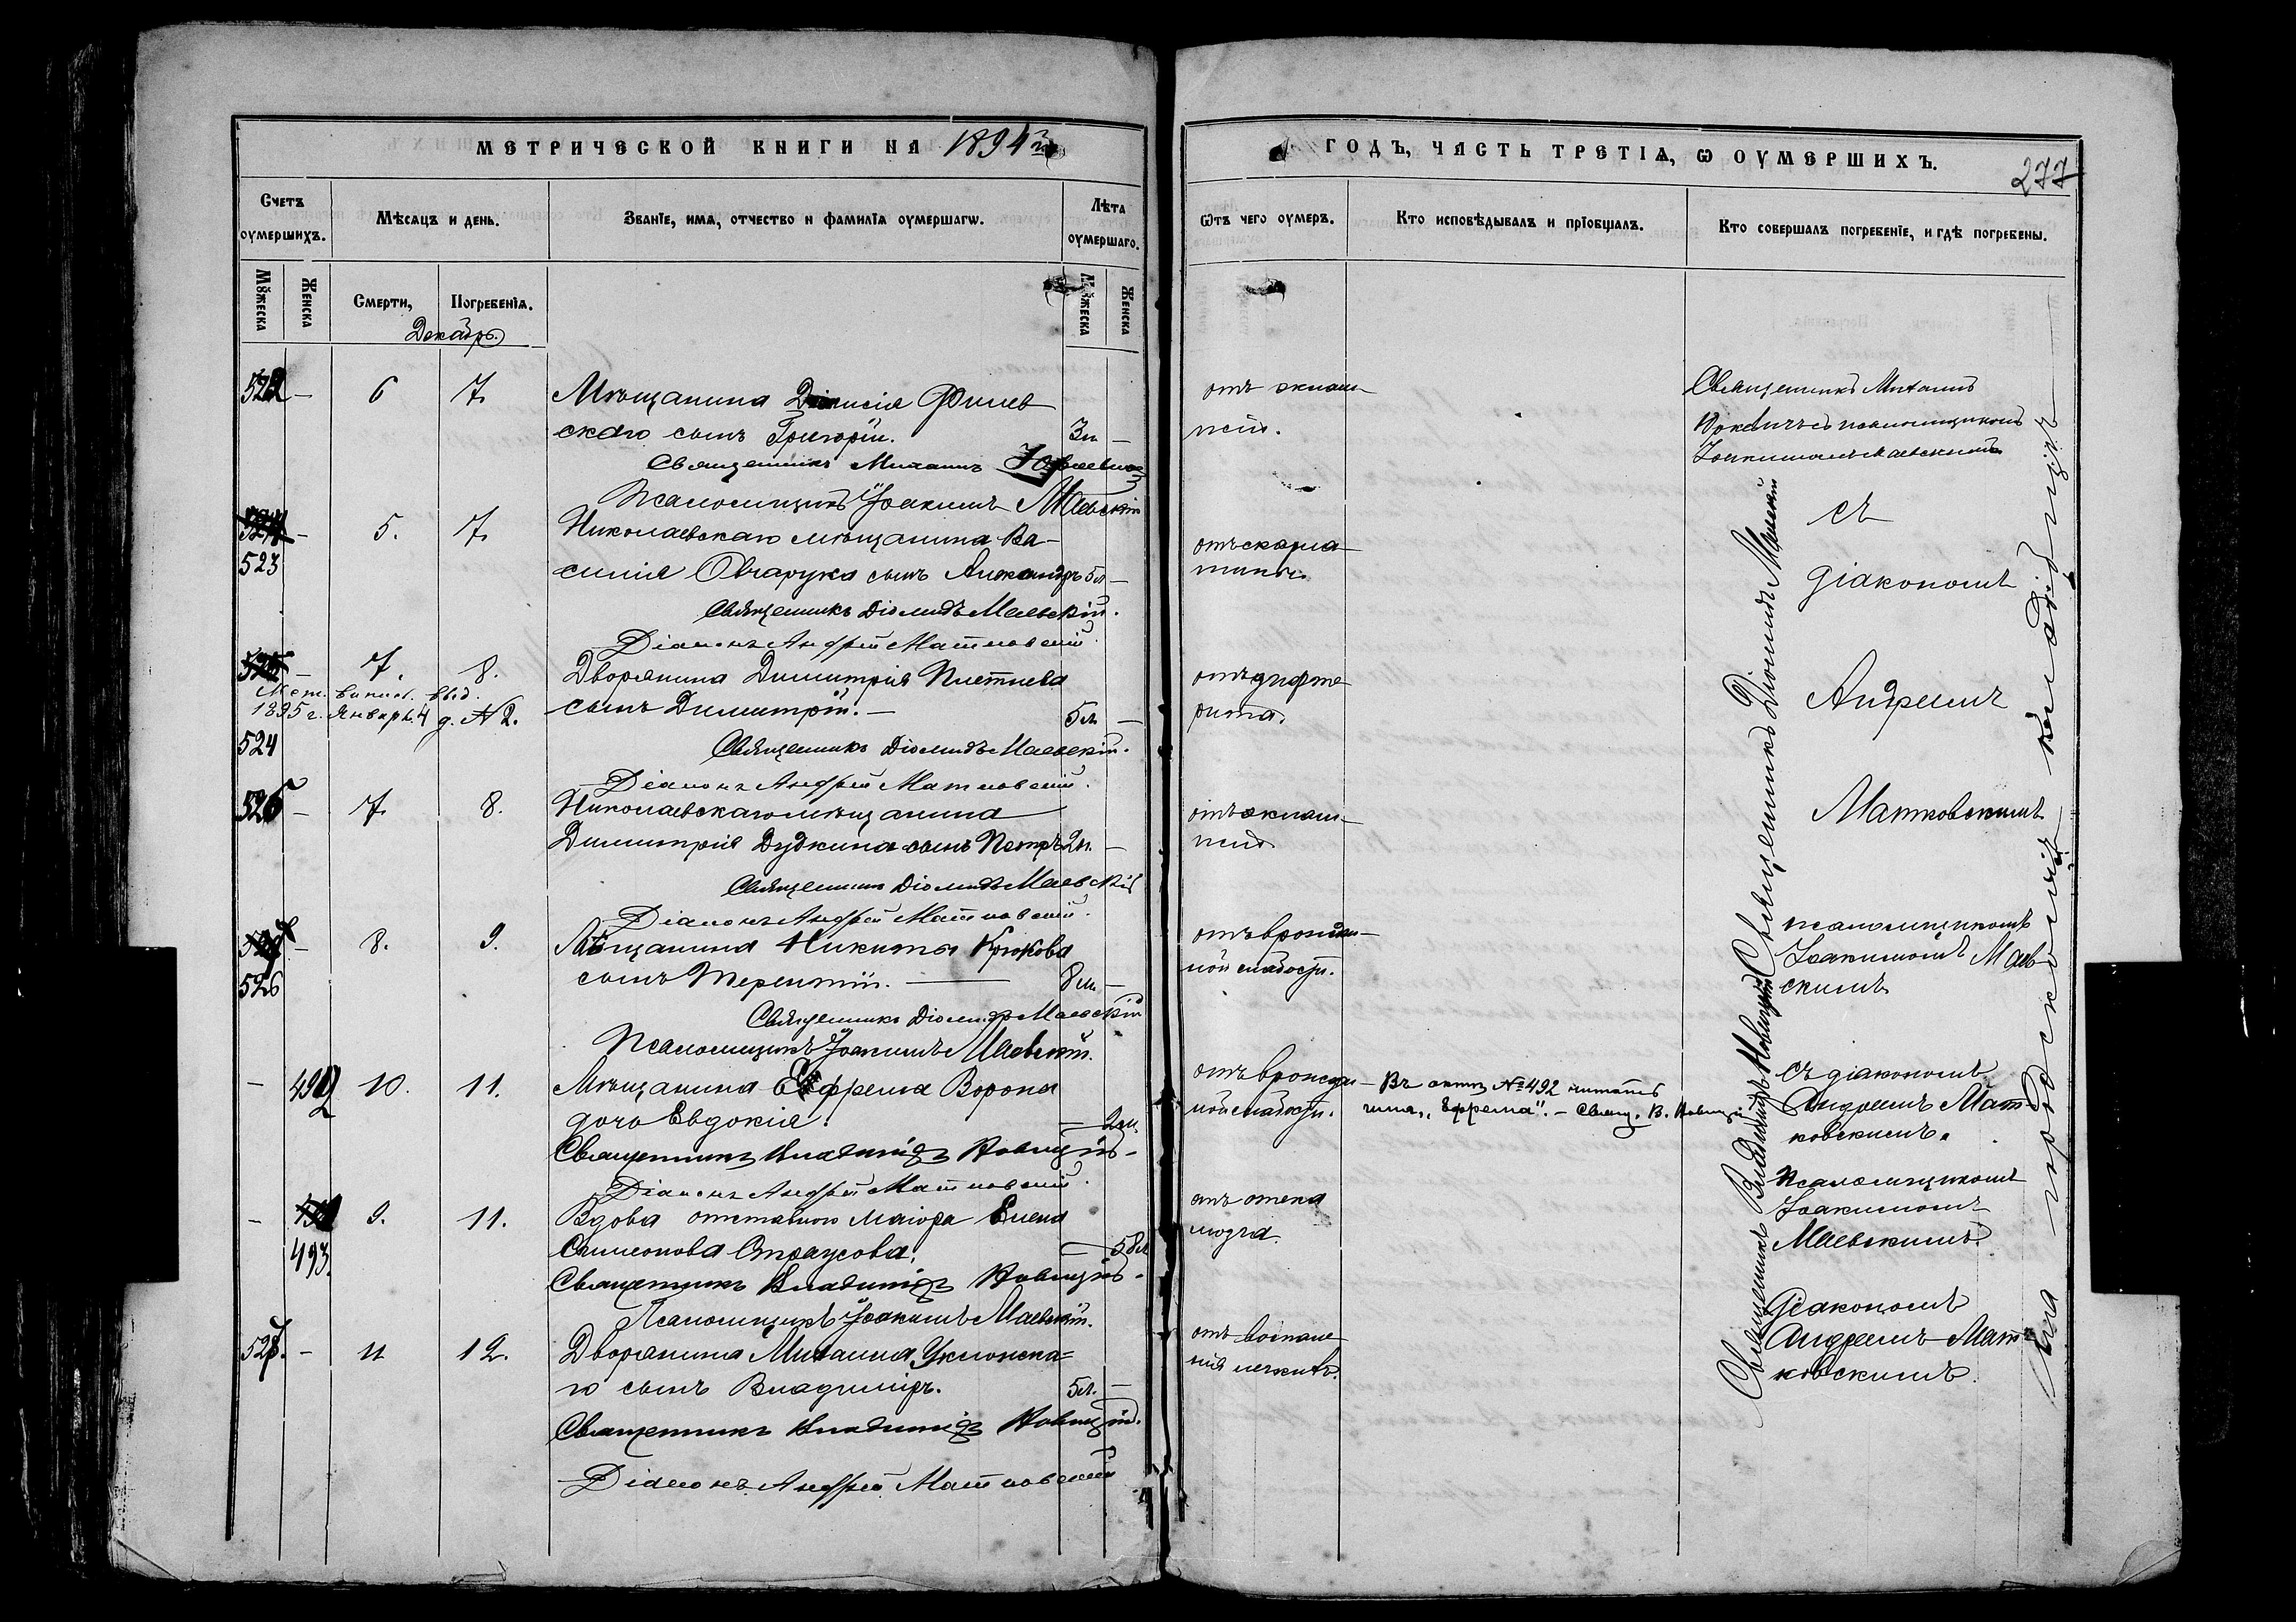 МЕТРИЧЕСКОЙ КНИГИ НА 1894
Счетъ оумершихъ.
Мѣсяцъ и день.
Званїе, имя, отчество и фамилїя оумершагѡ.
Лѣта оумершаго.
Мꙋжеска
Женска
Смерти,
Погребенїя.
Мꙋжеска
Женска
Декабрь.
522 — 6 7. Мѣщанина Діонисія Филев
скаго сынъ Григорій. 3 л. —
Священникъ Михаилъ
Псаломщикъ Іоакимъ Маевскій
— 5. 7. Николаевскаго мѣщанина Ва-
523 силія Овчарука сынъ Александръ 5 л. —
Священникъ Діомидъ Маевскій.
Діаконъ Андрей Матковскій.
— 7. 8. Дворянина Димитрія Плетнева
Мет. выпис. выд.
1895 г. Января 4 д. № 2. сынъ Димитрій. — 5 л. —
524
Священникъ Діомидъ Маевскій.
Діаконъ Андрей Матковскій.
525 — 7. 8. Николаевскаго мѣщанина
Димитрія Дудкина сынъ Петръ 2 л. —
Священникъ Діомидъ Маевскій
Діаконъ Андрей Матковскій.
— 8. 9. Мѣщанина Никиты Крюкова
526 сынъ Терентій. — 8 м. —
Священникъ Діомидъ Маевскій
Псаломщикъ Іоакимъ Маевскій.
— 492 10. 11. Мѣщанина Ефрема Ворона
дочь Евдокія. — 2 м.
Священникъ Владиміръ Новицкій.
Діаконъ Андрей Матковскій.
— 9. 11. Вдова отставного маіора Елена
493. Симеонова Страусова. — 58 л.
Священникъ Владиміръ Новицкій.
Псаломщикъ Іоакимъ Маевскій.
527. — 11 12. Дворянина Михаила Уклонска=
го сынъ Владиміръ. 5 л. —
Священникъ Владиміръ Новицкій.
Діаконъ Андрей Матковскій
ГОДЪ, ЧАСТЬ ТРЕТІЯ, Ѡ ОУМЕРШИХЪ.
277
Ѿтъ чего оумеръ.
Кто исповѣдывалъ и прїобщалъ.
Кто совершалъ погребенїе, и гдѣ погребены.
отъ эклам-
псіи.
Священникъ Михаилъ
съ псаломщикомъ
Іоакимомъ Маевскимъ
отъ скарла-
тины.
съ
діакономъ
отъ дифте
рита.
Андреемъ
отъ эклам-
псіи.
Матковскимъ
отъ врожден-
ной слабости.
псаломщикомъ
Іоакимомъ Маев-
скимъ
отъ врожден-
ной слабости.
Въ актѣ № 492 читать
„Ефрема". — Свящ. В. Новицкій
съ діакономъ
Андреемъ Мат-
ковскимъ.
отъ отека
мозга.
псаломщикомъ
Іоакимомъ
Маевскимъ.
отъ воспале-
нія легкихъ.
діакономъ
Андреемъ Мат-
ковскимъ.
Священникъ Владиміръ Новицкій Священникъ Діомидъ Маевскій
На городскомъ кладбищѣ